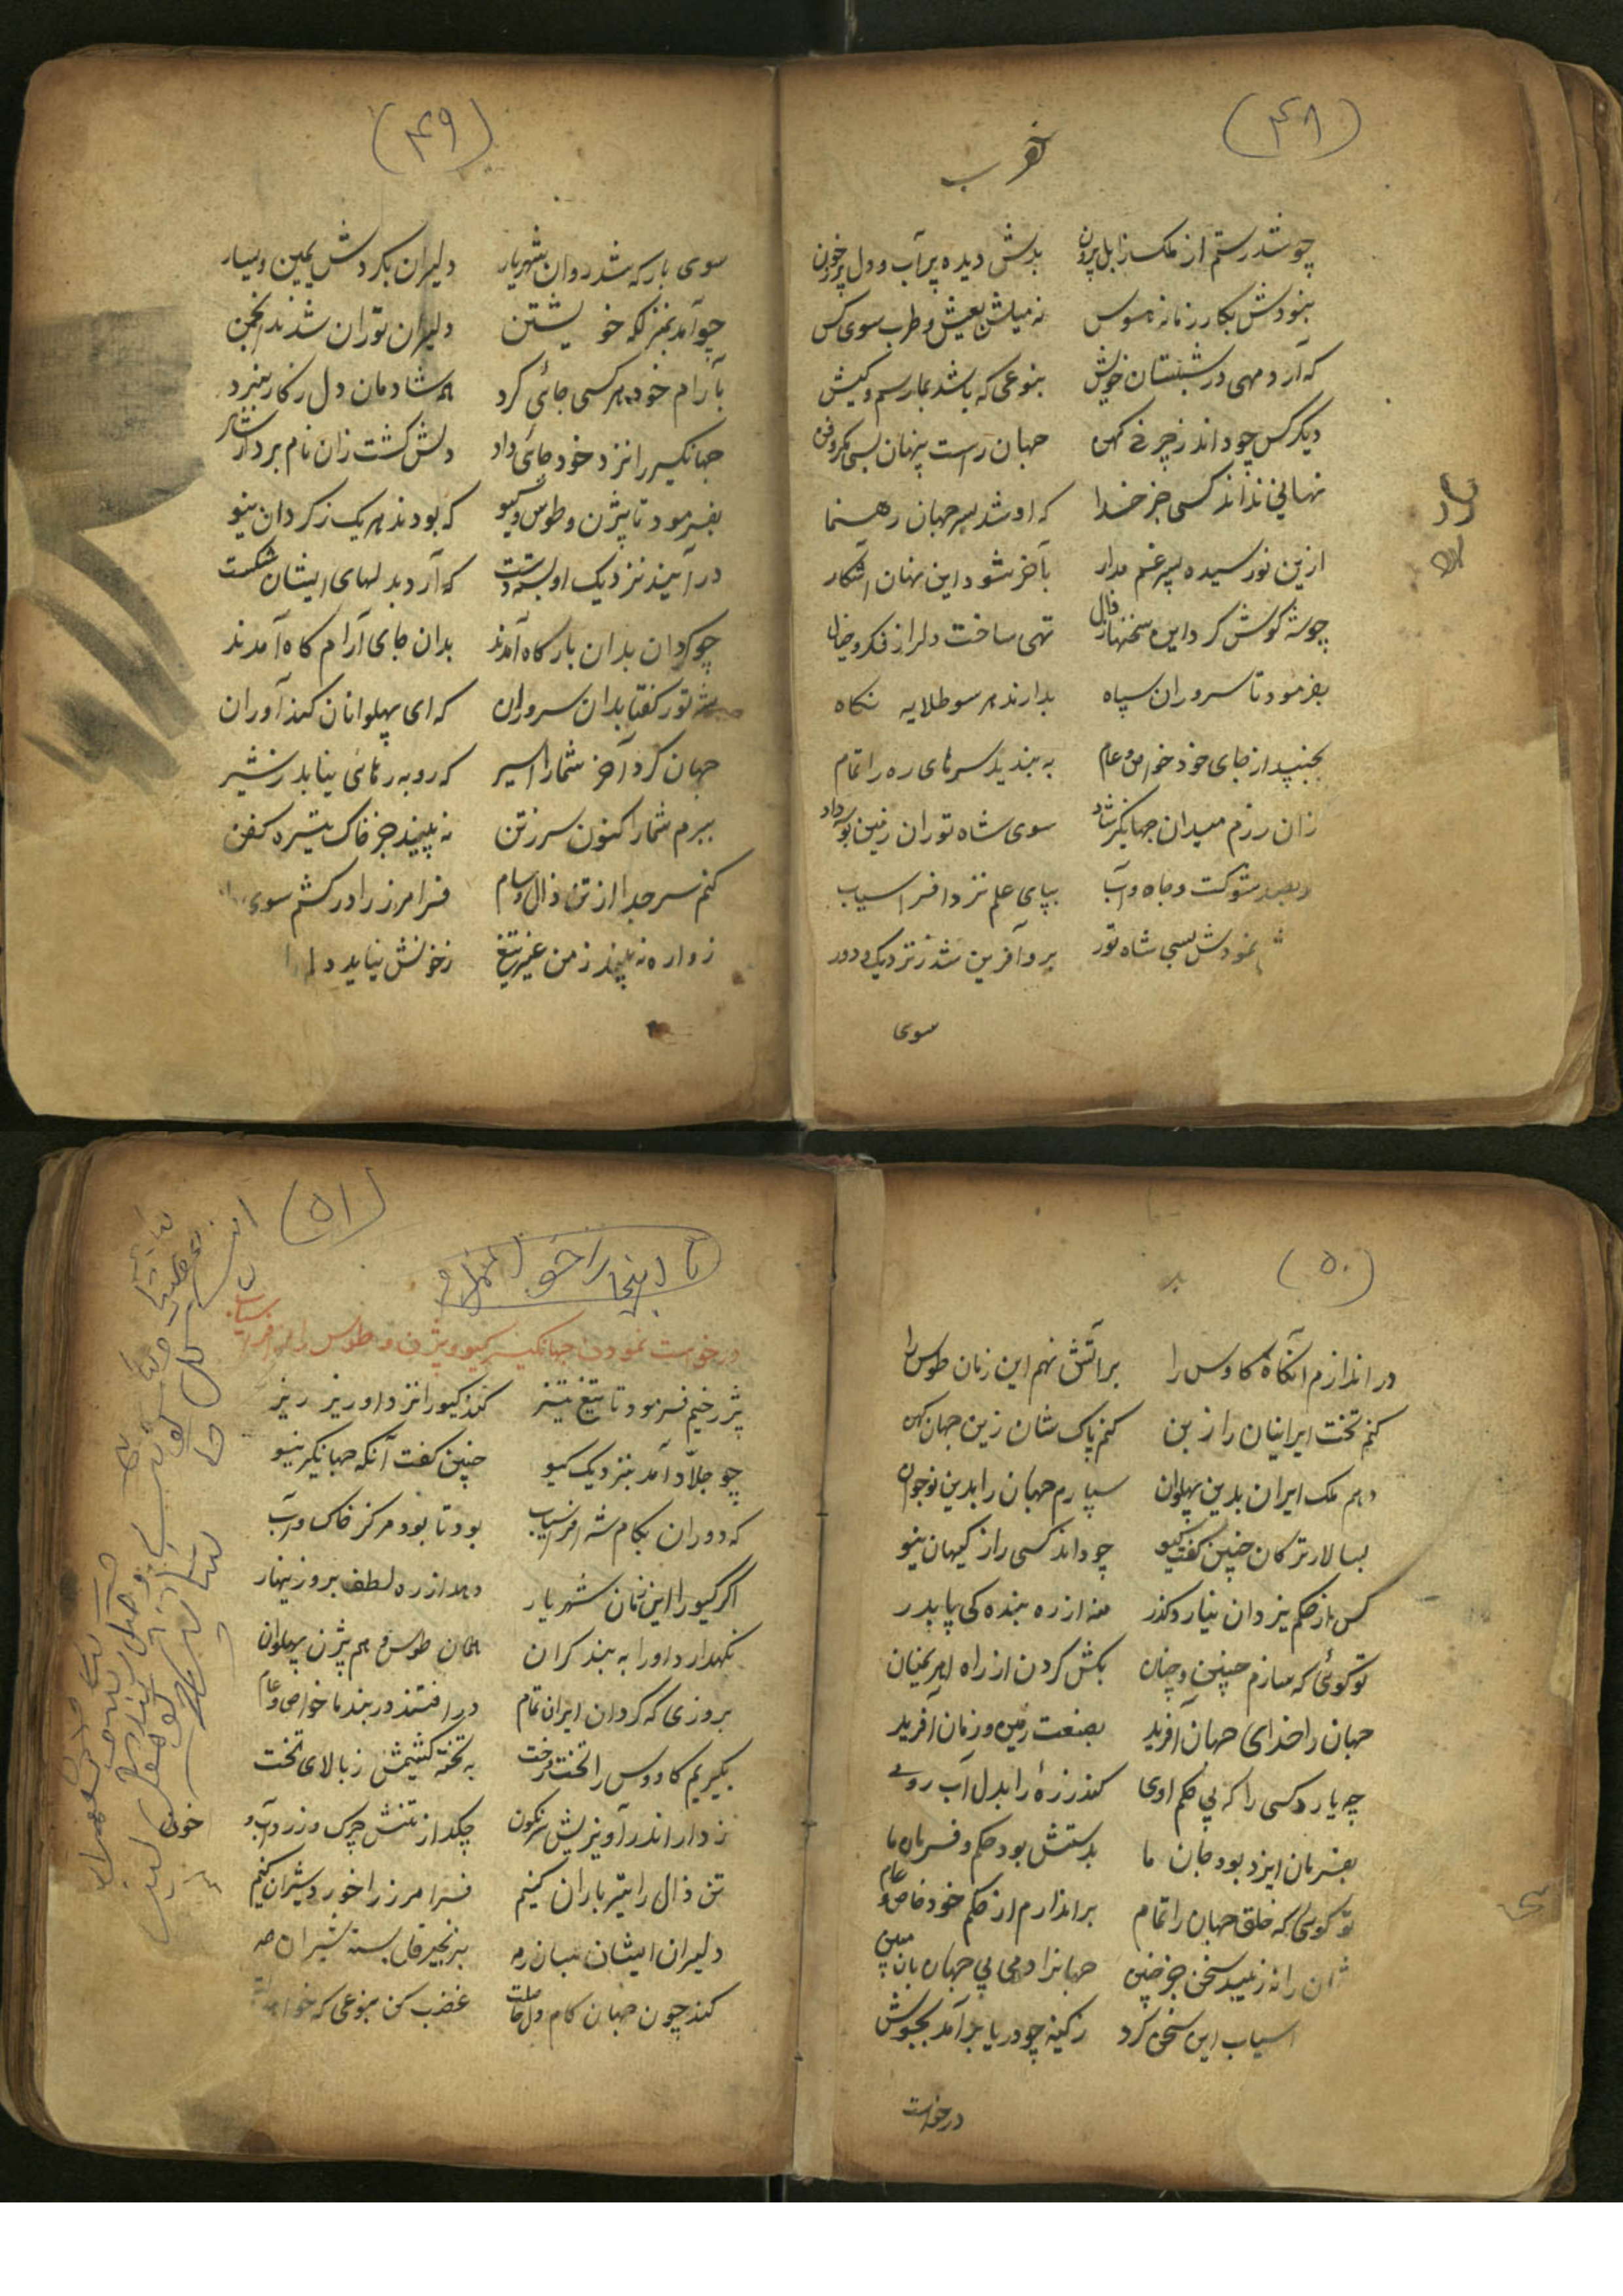 (۴۸)
چو شد رستم از ملک زابل برون بدش دیده پرآب و دل پر ز خون
نبودش بکار زمانه هوس نه میلش بعیش و طرب سوی کس
که آرد مهی در شبستان خویش بنوعی که باشد بما رسم و کیش
دیگر کس چو داند ز چرخ کهن جهان راست پنهان بسی مکر و فن
نهانی نداند کسی جز خدا که او شد بهر جهان رهنما
ازین نو رسیده پسر غم مدار بآخر شود این نهان آشکار
چو شه گوش کرد این سخنها ز زال تهی ساخت دل را ز فکر و خیال
بفرمود تا سروران سپاه بدارند هر سو طلایه نگاه
بجنبید از جای خود خواص و عام به بندید سرهای ره را تمام
زان رزم میدان جهانگیر شاد سوی شاه توران زمین
شوکت و جاه و آب بپای علم نزد افراسیاب
نمودش بسی شاه تور برو آفرین شد ز نزدیک و دور
سوی
(۴۹)
سوی بارگه شد روان شهریار دلیران بگردش یمین و یسار
چو آمد بنزلگه خویشتن دلیران توران شدند انجمن
بآرام خود هر کسی جائی کرد همه شادمان دل ز کار نبرد
جهانگیر را نزد خود جای داد دلش گشت زان نام بردار شاد
بفرمود تا بیژن و طوس و گیو که بودند هر یک ز گردان نیو
در آیند نزدیک او بسته دست که آرد بدلهای ایشان شکست
چو گردان بدان بارگاه آمدند بدان جای آرام گاه آمدند
شه تور گفتا بدان سروران که ای پهلوانان کندآوران
جهان کرد آخر شما را اسیر که روبه رهائی نیابد ز شیر
ببرم شما را کنون سر ز تن نه بینید جز خاک تیره کفن
کنم سر جدا از تن زال و سام فرامرز را در کشم سوی
زواره نه بیند ز من غیر تیغ ز خونش نیاید دلم
(۵۰)
در اندازم آنگاه کاوس را بر آتش نهم این زمان طوس را
کنم تخت ایرانیان را ز بن کنم پاک شان زین جهان کهن
دهم ملک ایران بدین پهلوان سپارم جهان را بدین نوجوان
بسالار ترکان چنین گفت گیو چو داند کسی راز کیهان نیو
کس از حکم یزدان نیارد گذر منه از ره بنده کی پا بدر
تو گوئی که سازم چنین و چنان بکش گردن از راه اهریمنان
جهان را خدای جهان آفرید بصنعت زمین و زمان آفرید
چه یارد کسی را که بی حکم اوی کند زره را بدل آب روی
بفرمان ایزد بود جان ما بدستش بود حکم و فرمان ما
تو گوئی که خلق جهان را تمام براندازم از حکم خود خاص و عام
را نه زیبد سخن جز چنین
اسیاب این سخن کرد ز کینه چو دریا بر آمد بجوش
درخواست
(۵۱)
تا اینجا را خواندم
درخواست نمودن جهانگیر گیو و بیژن و طوس را از افراسیاب
بژرخیم فرمود تا تیغ تیز کند گیو را نزد او ریز ریز
چو جلاد آمد بنزدیک گیو چنین گفت آنگه جهانگیر نیو
که دوران بکام شه افراسیاب بود تا بود مرکز خاک و آب
اگر گیو را این زمان شهریار دهد از ره لطف بروز نهار
نگهدارد او را به بند گران همان طوس و هم بیژن پهلوان
بروزی که گردان ایران تمام در افتند در بند با خواص و عام
بگیریم کاووس را تخت و رخت به تخته کشیمش ز بالای تخت
ز دار اندر آویزیش سرنگون چکد از تنش چرک و زرداب و خون
تن زال را تیرباران کنیم فرامرز را خورد شیران کنیم
دلیران ایشان میان رمه بزنجیرها بسته شیران همه
کند چون جهان کام دل حاصلت غضب کن بنوعی که